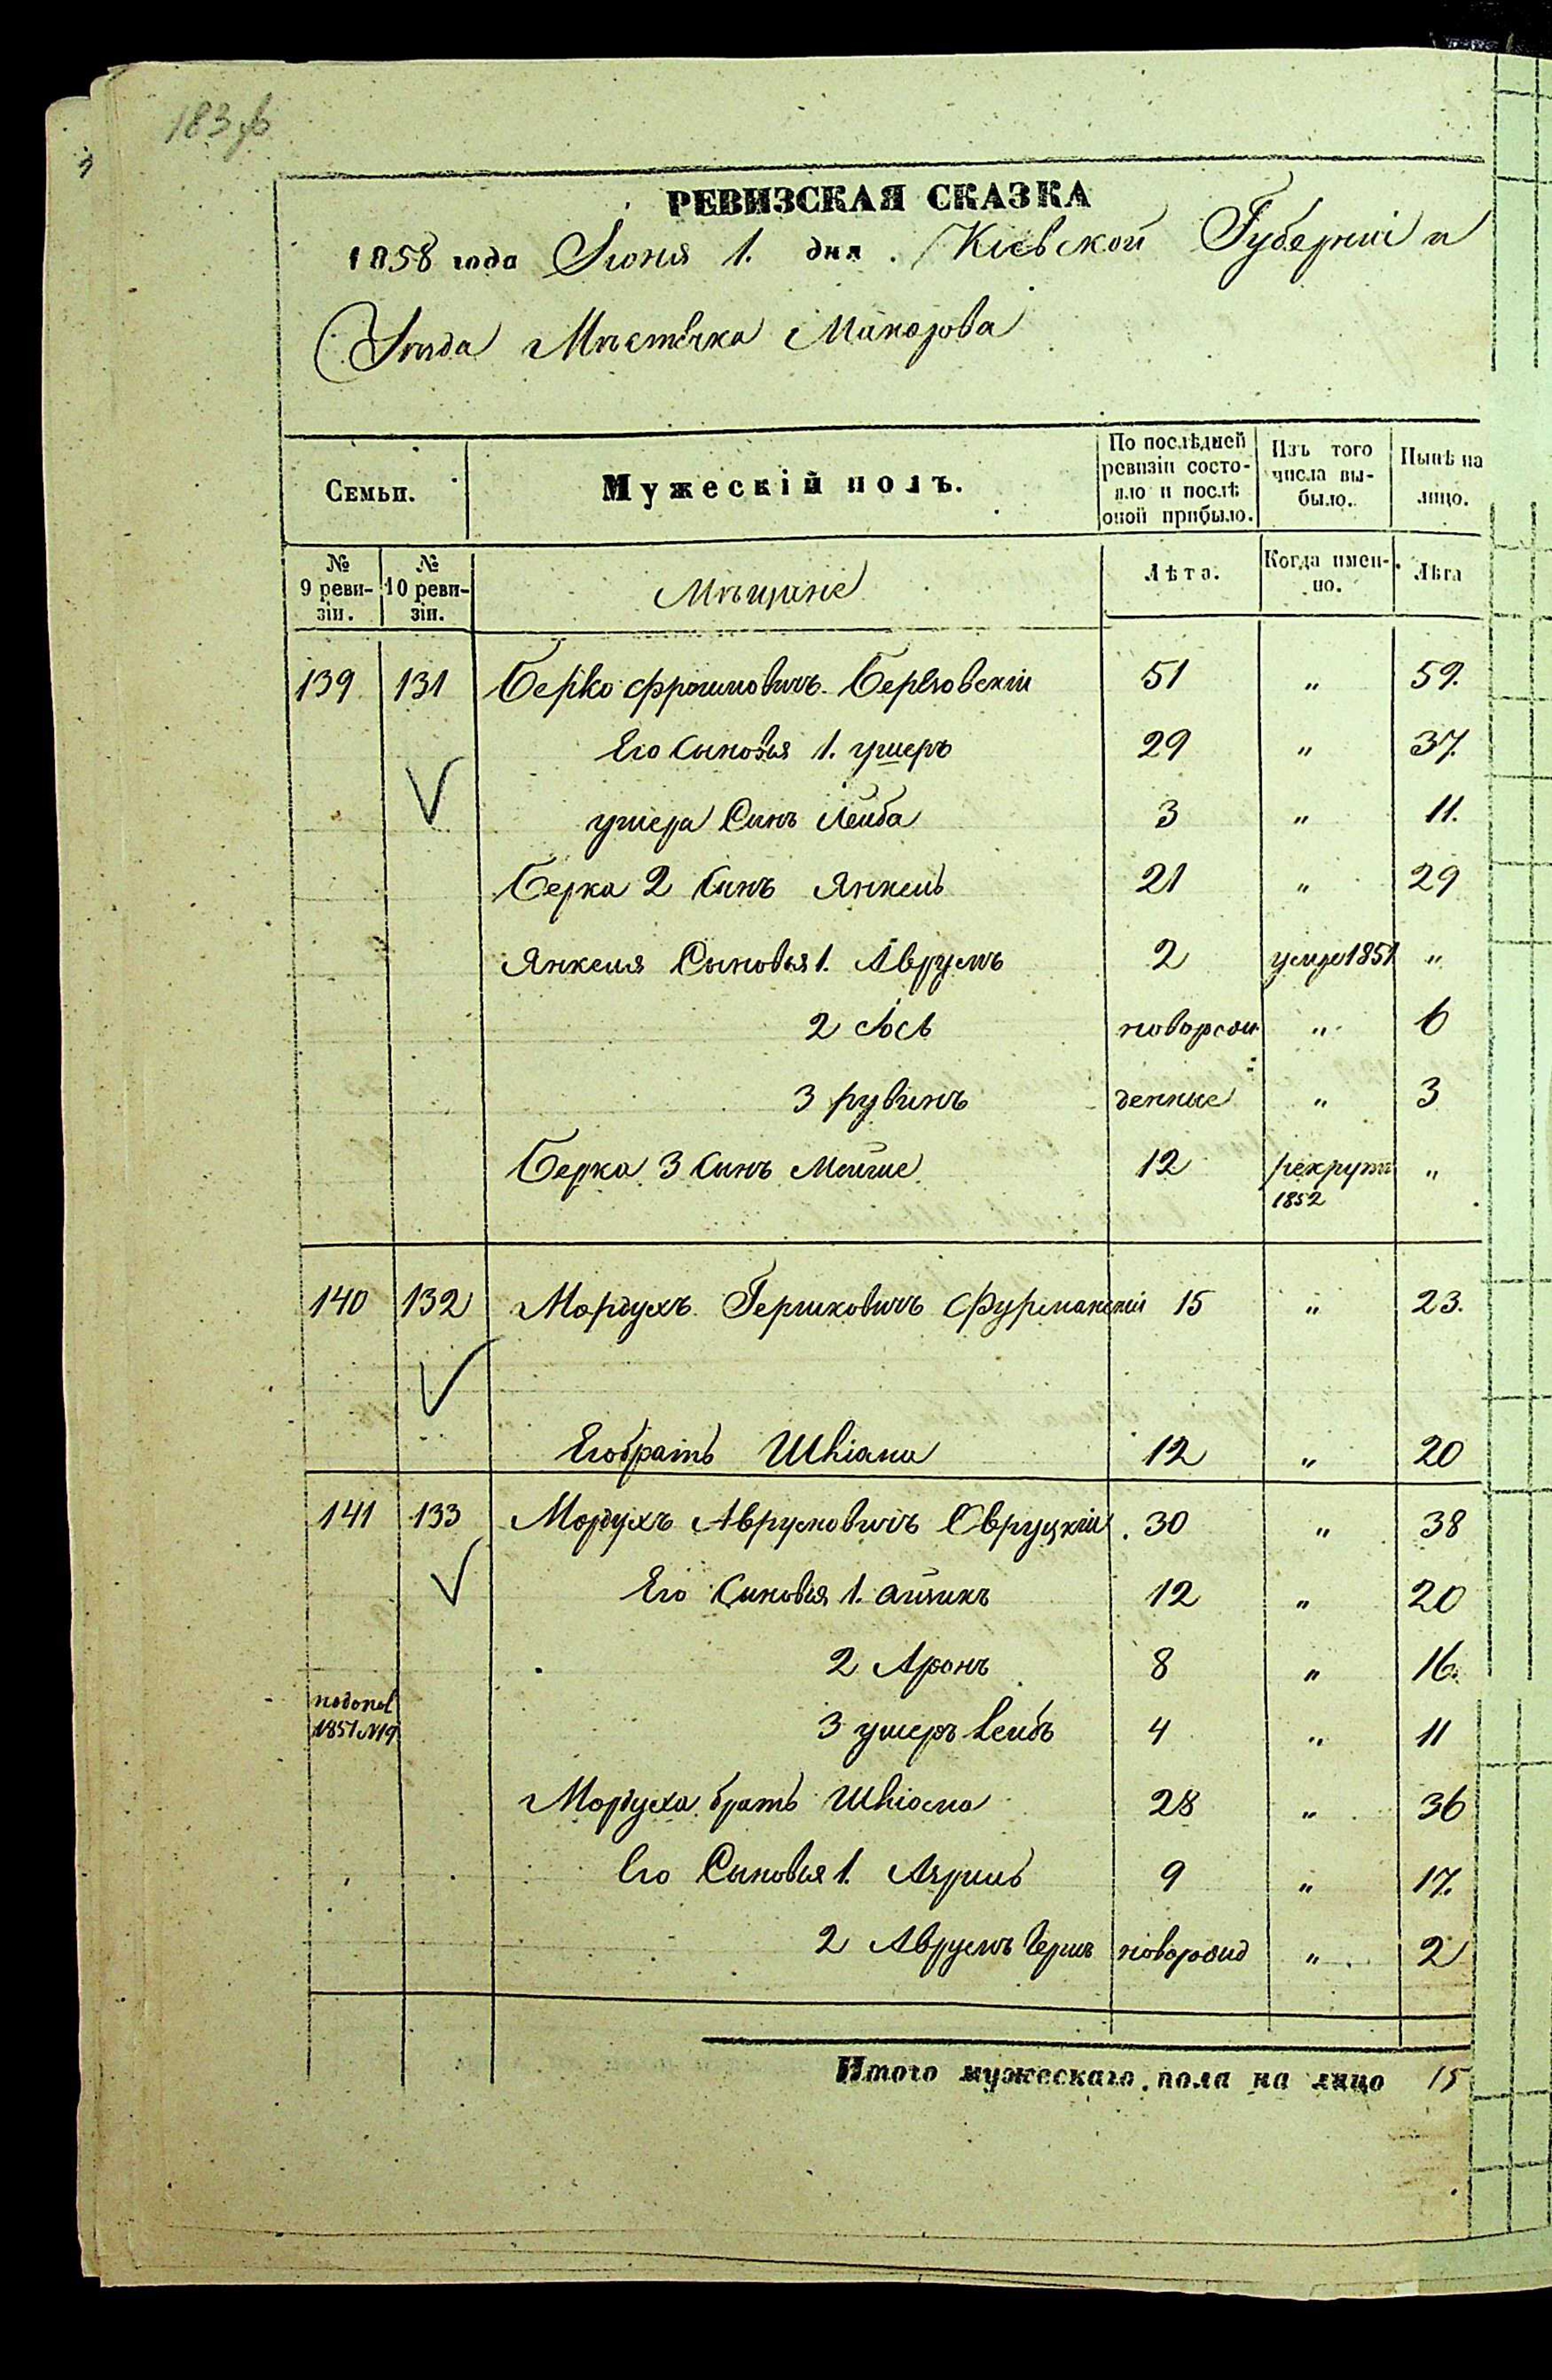 183 об
РЕВИЗСКАЯ СКАЗКА
1858 года Іюня 1. дня. Кіевской Губерніи и
Уѣзда Мѣстечка Макарова
Семьи.
Мужескій полъ.
По послѣдней ревизіи состояло и послѣ оной прибыло.
Изъ того числа выбыло.
Нынѣ на лицо.
№ 9 ревизіи.
№ 10 ревизіи.
Мѣщане
Лѣта.
Когда именно.
Лѣта
139 131 Берко Фроимовичъ Березовскій 51 " 59.
Его Сыновья 1. Ушеръ 29 " 37.
Ушера Сынъ Лейба 3 " 11.
Берка 2 Сынъ Янкель 21 " 29
Янкеля Сыновья 1. Аврумъ 2 умре 1851 "
2 Іось новорож " 6
3 рувинъ денные " 3
Берка 3 Сынъ Мойше 12 рекрутъ 1852 "
140 132 Мордухъ Гершковичъ Фурманскій 15 " 23.
Его братъ Шліома 12 " 20
141 133 Мордухъ Аврумовичъ Овруцкій 30 " 38
Его Сыновья 1. Айзикъ 12 " 20
2 Аронъ 8 " 16.
1851 №19 3 Ушеръ Лейбъ 4 " 11
Мордуха братъ Шліома 28 " 36
Его Сыновья 1. Азриль 9 " 17.
2 Аврумъ Герш новорожд " 2
Итого мужескаго пола на лицо 15